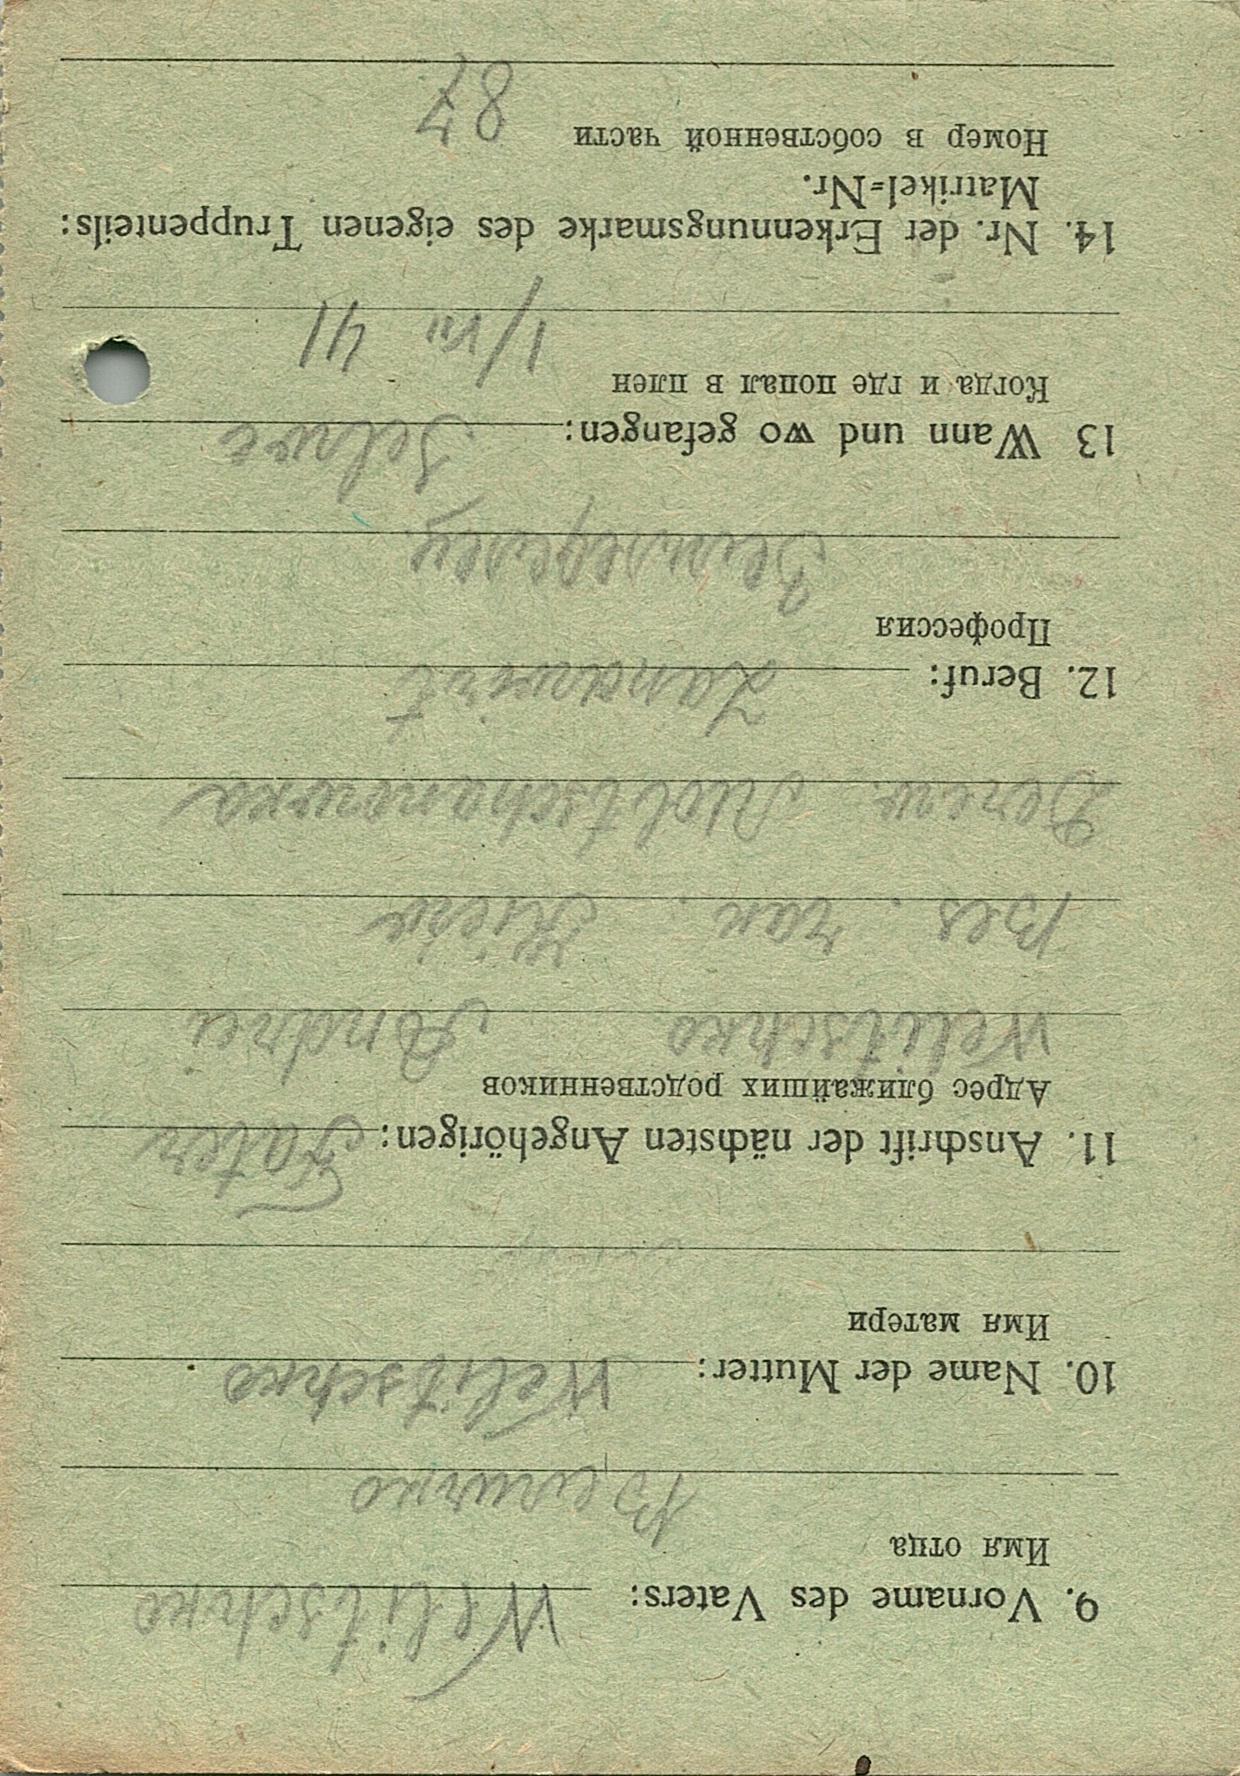 9. Vorname des Vaters: Welitschko
Имя отца
Величко
10. Name der Mutter: Welitschko
Имя матери
11. Anschrift der nächsten Angehörigen: Fater
Адрес ближайших родственников
Welitschko Andrei
Bes. rak. Kiew
Derew. Moltschanowka
12. Beruf: Landwirt
Профессия
13 Wann und wo gefangen:
Когда и где попал в плен
1/VIII 41
14. Nr. der Erkennungsmarke des eigenen Truppenteils:
Matrikel=Nr.
Номер в собственной части
87